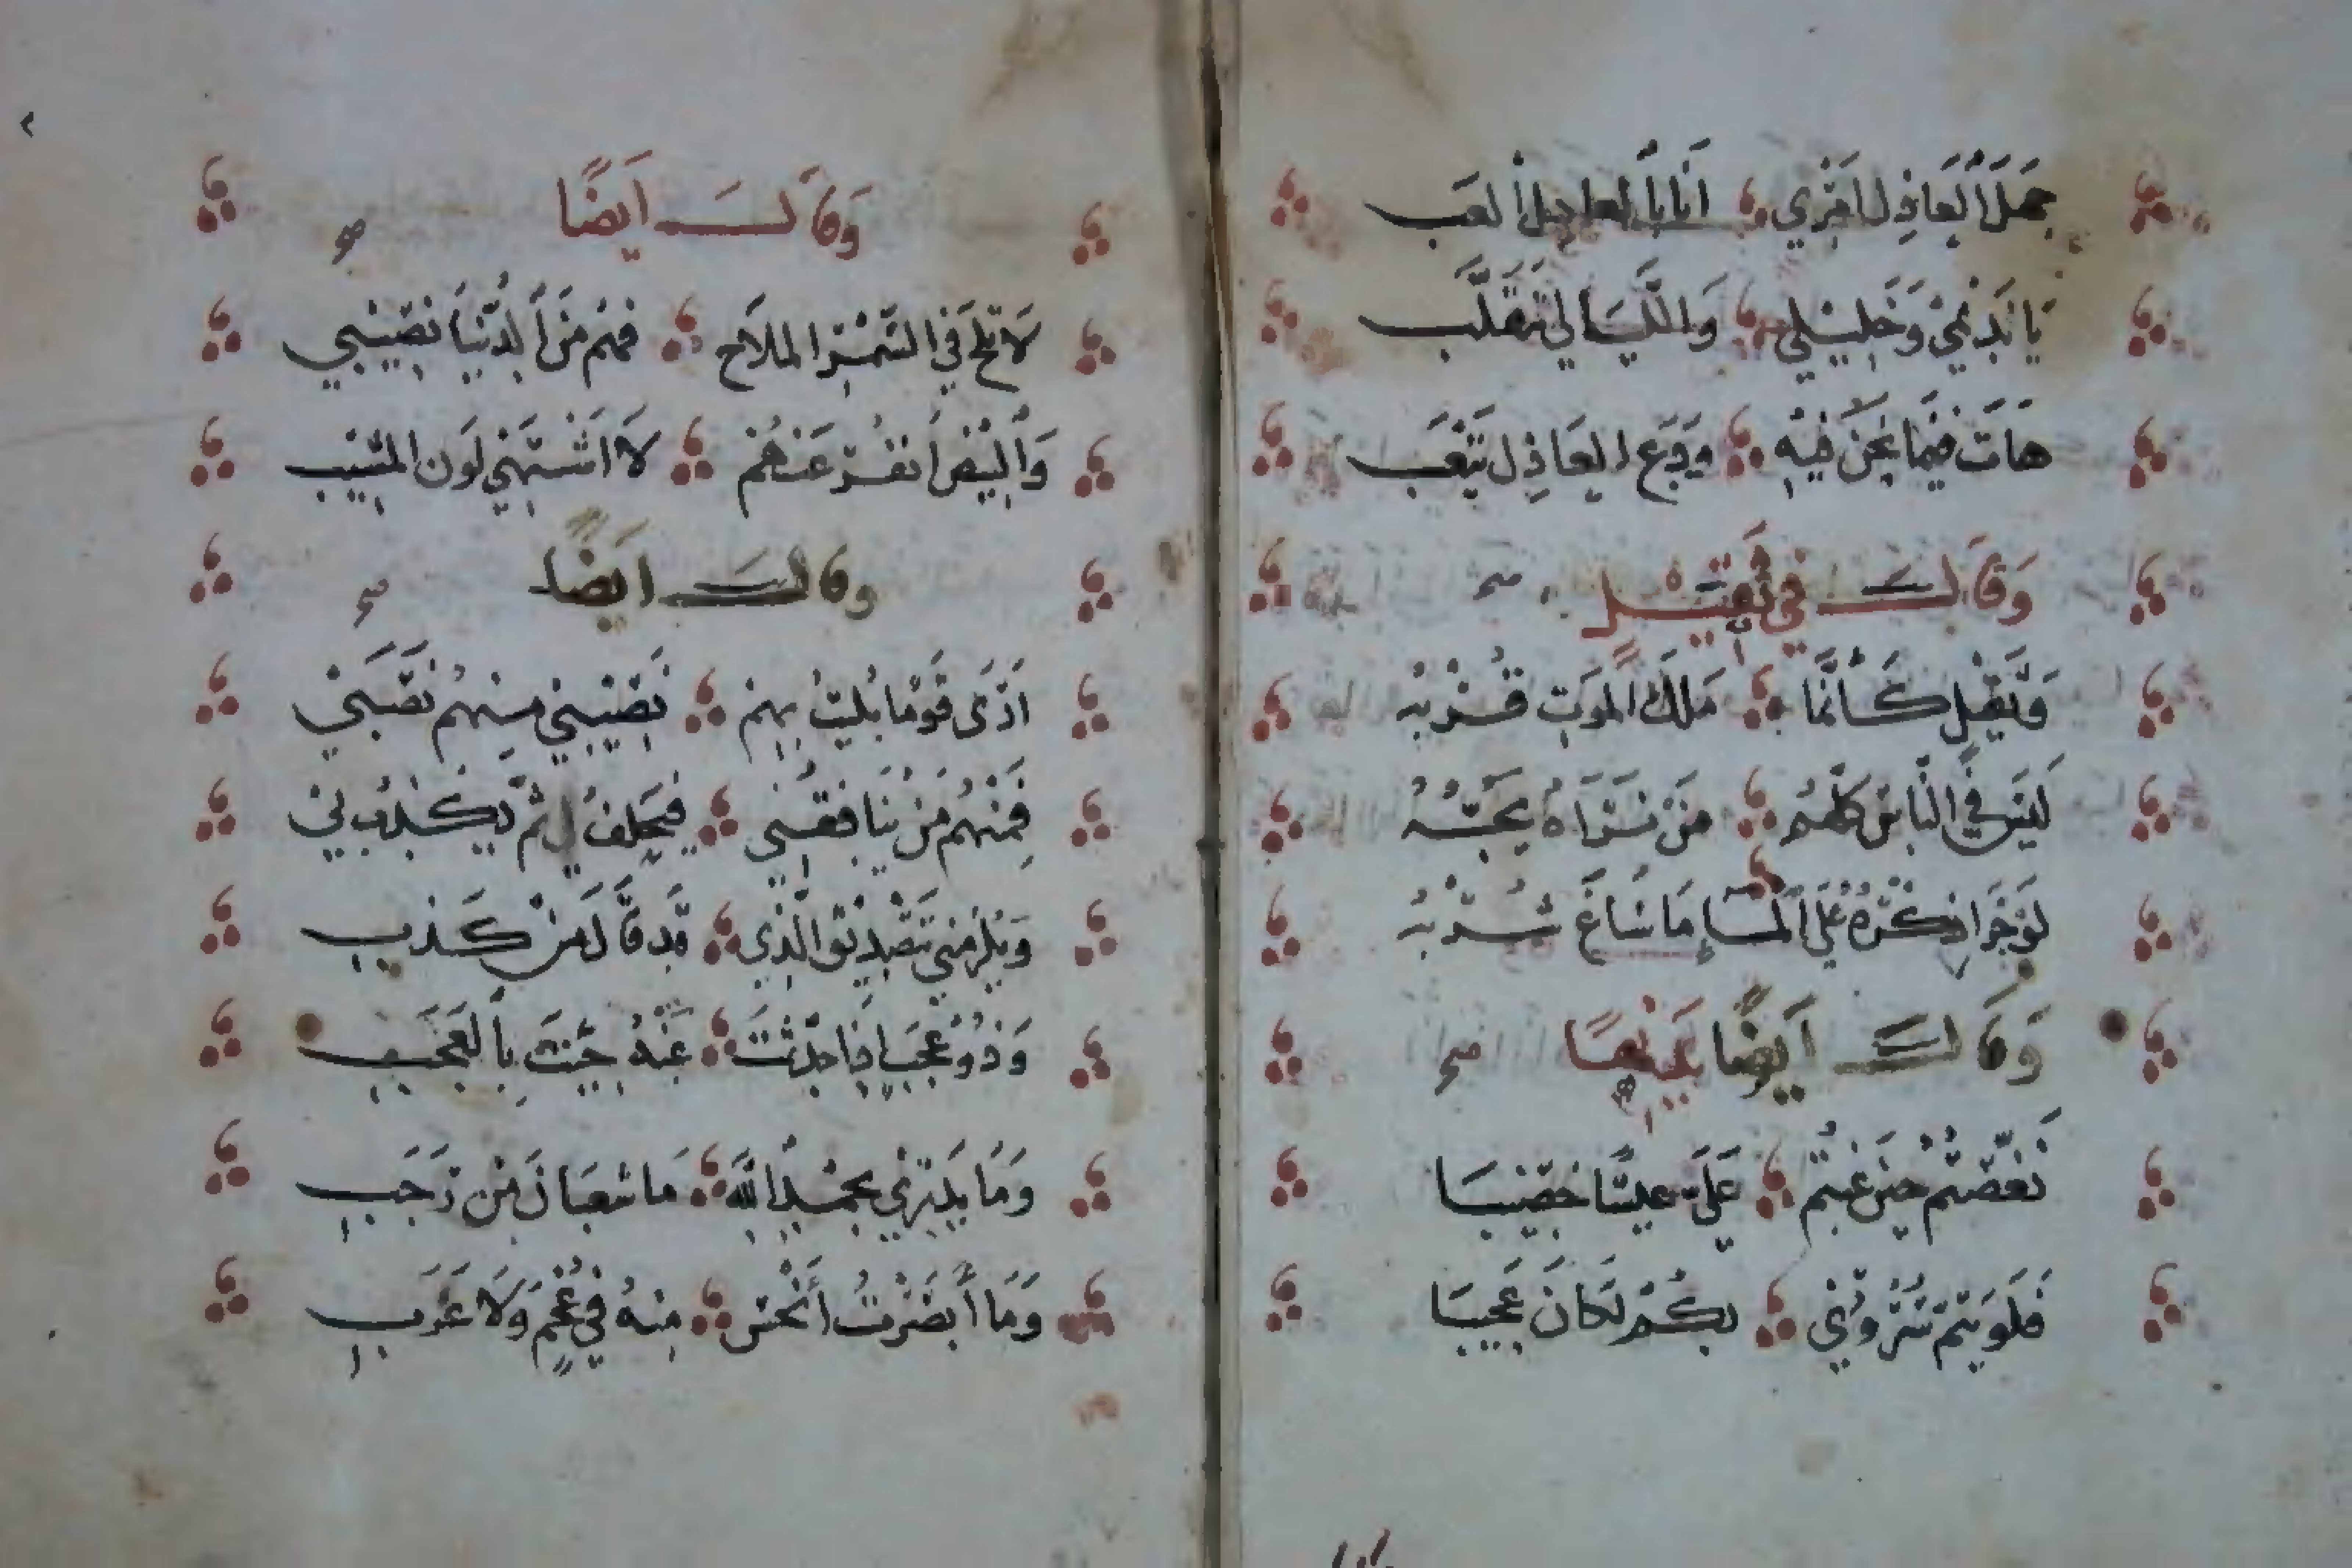 جهل العاذل امري انا بالعاذل العب
يا نديمي وخليلي والليالي تتقلب
هات فيما نحن فيه ودع العاذل يتعب
وقال في ثقيل
وثقيل كأنما ملك الموت قربه
ليس في الناس كلهم من تراه يحبه
لو جرا ذكره على الما ما ساغ شربه
وقال ايضا
نغصتم حين غبتم علي عيشا خصيبا
فلو يتم سروري بكم لكان عجيبا
وقال ايضا
لا تلح في السمر الملاح فهم من الدنيا نصيبي
والبيض انفر عنهم لا اشتهي لون المشيب
وقال ايضا
اذى قوما بليت بهم نصيبي منهم نصبي
فمنهم من ينافقني فيحلف لي ثم يكذب لي
ويلزمني تصديق الذي قد قال من كذب
وذو عجب اذا حدثت عنه جيت بالعجب
وما يدري بحمد الله ما شعبان من رجب
وما أبصرت أنحس منه في عجم ولا عرب